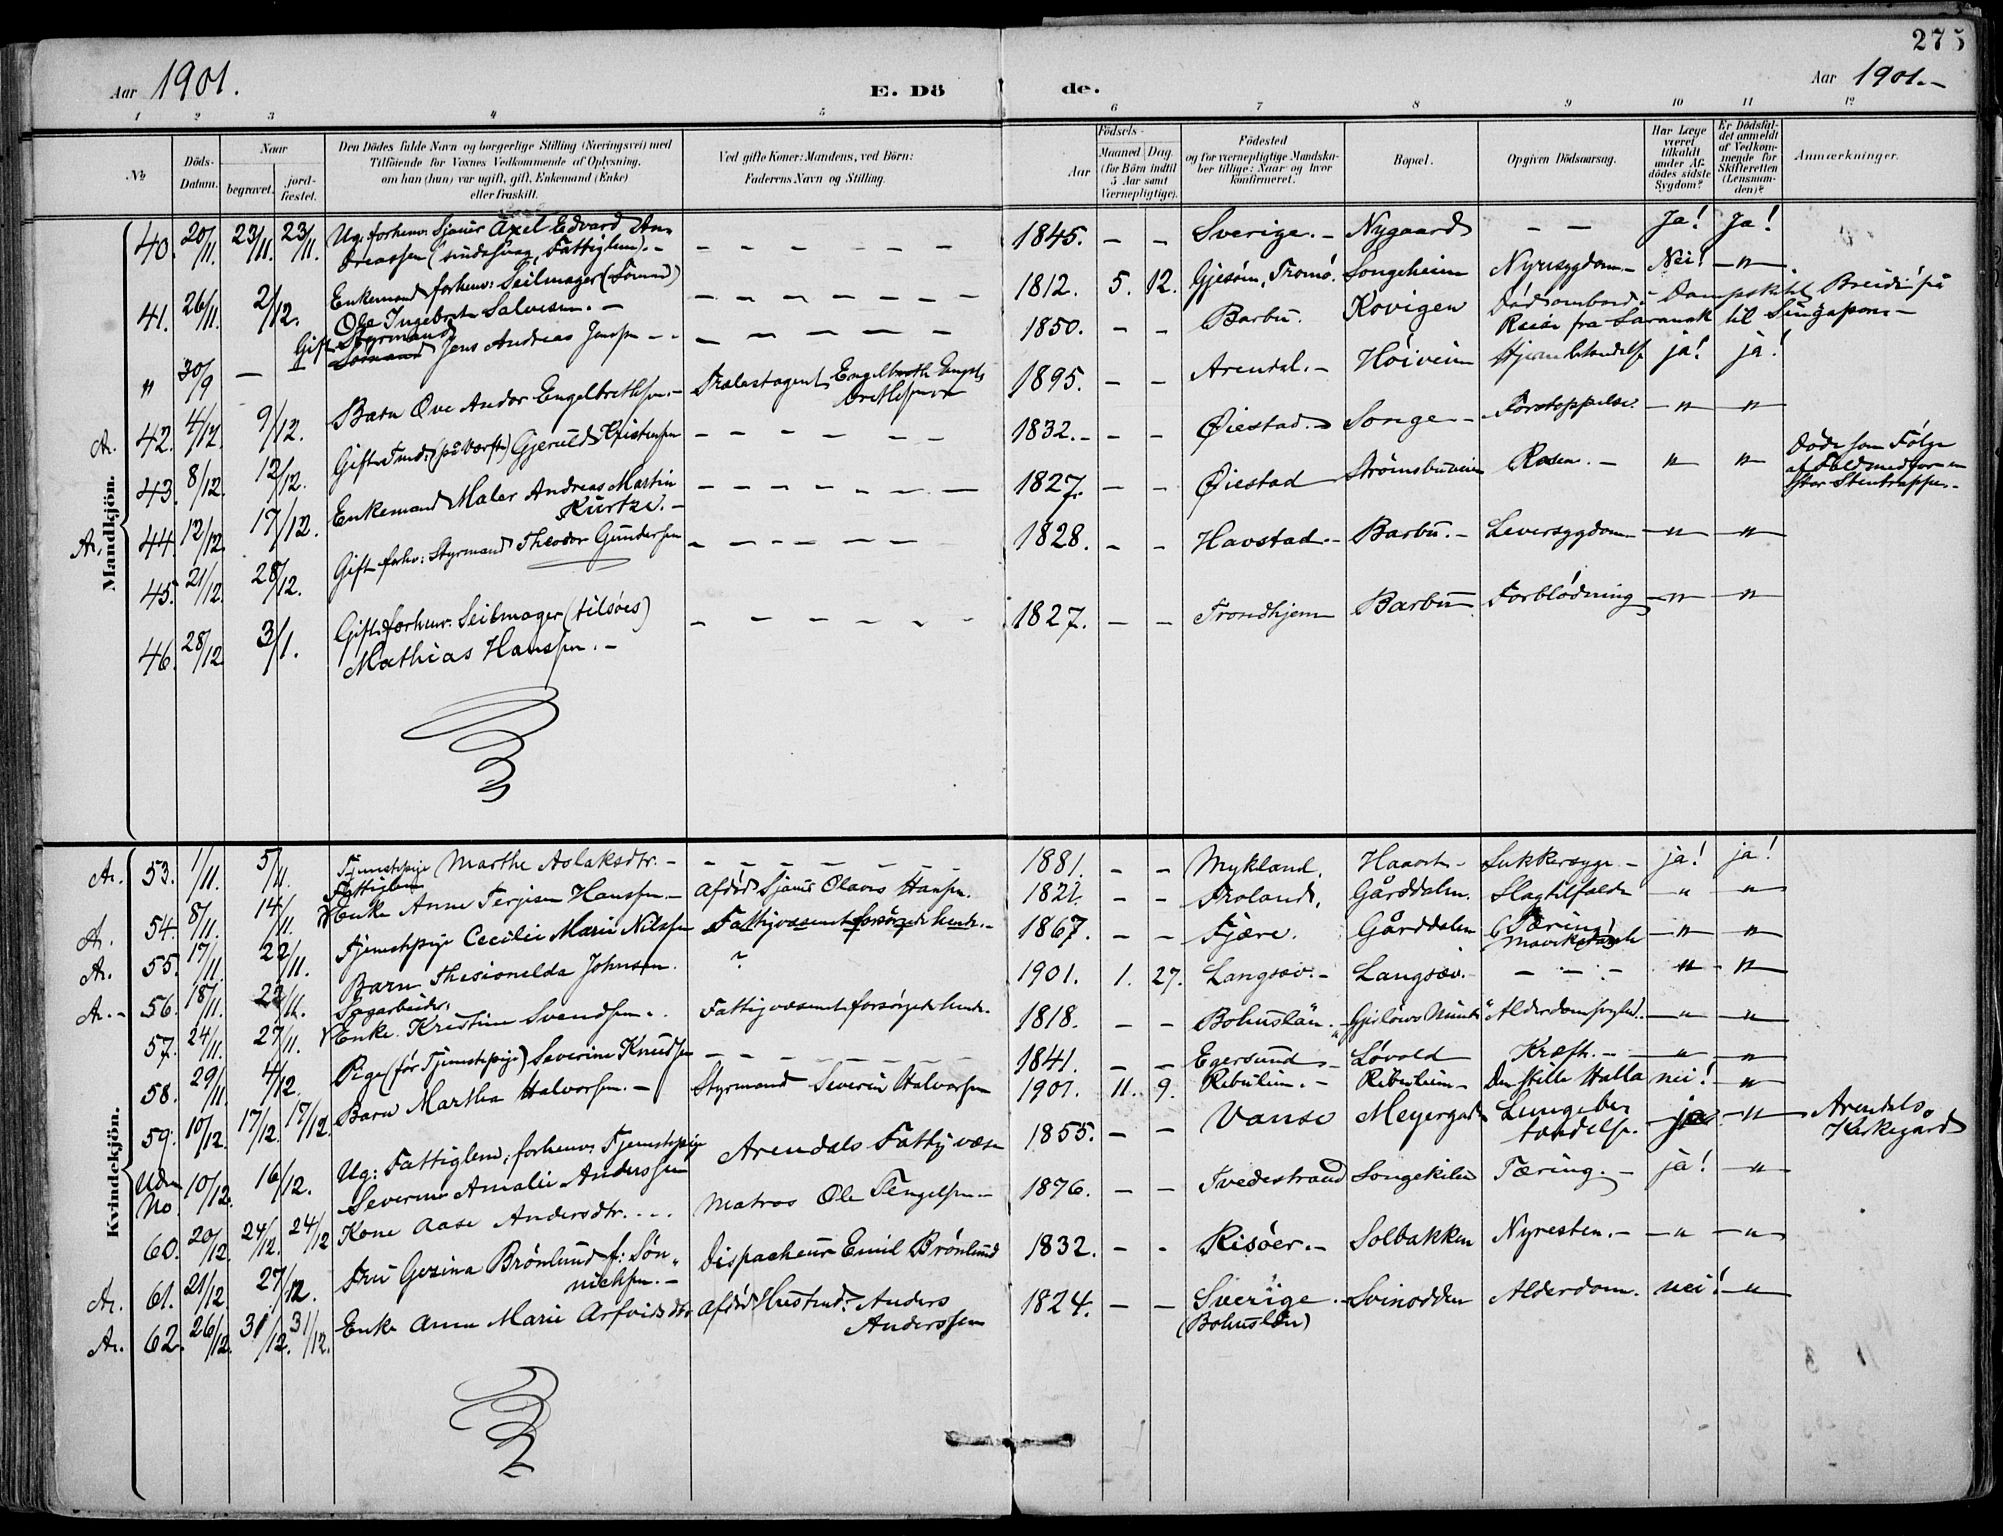 275
Aar 1901.
E. Dö
de.
Aar 1901.-
1 2 3 4 5 6 7 8 9 10 11 12
No
Döds-Datum.
Naar
begravet.
jord-fæstet.
Den Dödes fulde Navn og borgerlige Stilling (Næringsvei) med
Tilföiende for Voxnes Vedkommende af Oplysning,
om han (hun) var ugift, gift, Enkemand (Enke)
eller fraskilt.
Ved gifte Koner: Mandens, ved Börn:
Faderens Navn og Stilling.
Födsels-
Aar
Maaned Dag
(for Börn indtil
5 Aar samt
Værnepligtige).
Födested
og for værnepligtige Mandska-
ber tillige: Naar og hvor
konfirmeret.
Bopæl.
Opgiven Dödsaarsag.
Har Læge
været
tilkaldt
under Af-
dödes sidste
Sygdom?
Er Dödsfal-
det anmeldt
af Vedkom-
mende for
Skifteretten
(Lensman-
den)?
Anmærkninger.
Mandkjön.
40. 20/11. 23/11. 23/11. Ug. forhenv. Sjauer Axel Edvard An-
dreassen (sindssvag, Fattiglem).- 1845. - - Sverige.- Nygaard - - Ja! Ja!
41. 26/11. 2/12. Enkemand forhenv: Seilmager (Tømmd)
Ole Ingebret Salvesen.- 1812. 5. 12. Gjesøen, Tromø. Songeheim Nyresygdom.- Nei! -"-
" 30/9 - Gift Styrmand
Jens Andreas Jensen - - 1850. - - Barbu. Kovigen Død ombord i Dampskibet Breid på
Reise fra Sarawak til Singapore -
A. 42. 4/12. 9/12. Barn Ove Andor Engelbrethsen.- Trælastagent Engelbreth Engel-
brethsen 1895. - - Arendal.- Høiveien Hjernebetændelse ja! ja!
43. 8/12. 12/12. Gift Tmd. (på Værft) Gjeruld Kristensen 1832.- - - Øiestad.- Songe - Forstoppelse. -"- -"-
A. 44. 12/12. 17/12. Enkemand Maler Andreas Martin
Kurtze.- 1827. - - Øiestad Strømsbuveien Rosen.- " " Døde som Følge
45. 21/12. 28/12. Gift forhv: Styrmand Theodor Gundersen 1828. - - Havstad.- Barbu.- Leversygdom -"- -"-
46. 28/12 3/1. Gift forhenv. Seilmager (tilsøes)
Mathias Hanssen.- 1827. - - Trondhjem Barbu Forblødning -"- -"-
Kvindekjön.
A. 53. 1/11. 5/11. Tjenestepige Marthe Aslaksdtr.- 1881. - - Mykland. Sukkersyge - ja! ja!
A. 54. 8/11. 14/11. Fattiglem
Enke Anne Terjesen Hanssen.- Afdød Sjauer Olaves Hansen. 1822. - - Froland. Gårddalen. Slagtilfælde " -"-
A. 55. 17/11. 22/11. Tjenestepige Cecilie Marie Nilssen Fattigvæsenet forsørgede hende.- 1867. - - Fjære. Gårddalen Tæring -"- -"-
A.- 56. 18/11. 22/11. Barn Thesionelda Johnsen. ? 1901. 1. 27. Langsæv.- Langsæv.- - - - " -"-
57. 24/11. 27/11. Sagarbeider.
Enke Kristine Svendsen.. Fattigvæsenet forsørgede hende. 1818. - - Bohuslän. Alderdomssvaghed. -"- -"-
58. 29/11. 4/12. Pige (før Tjenestepige) Severine Knudsen 1841. - - Egersund - Løvold Kræft.- -"- -"-
59. 10/12. 17/12. 17/12. Barn Martha Halvorsen.- Styrmand Severin Halvorsen 1901. 11. 9. Ribuheim.- Ribuheim - Den stille Halla nei! -"-
Uden No. 10/12. 16/12. Ug: Fattiglem, forhenv. Tjenestepige
Severine Amalie Anderssen Arendals Fattigvæsen 1855. - - Vanse Meyergaden Lungebe-
tændelse. - ja -"- Arendals
Kirkegård
60. 20/12. 24/12. 24/12 Kone Aase Andersdtr. . . . Matros Ole Tengelsen - 1876. - - Tvedestrand Songekilen Tæring.- ja! -"-
A. 61. 21/12. 27/12. Fru Gezina Brønlund f: Søn-
nichsen.- Dispacheur Emil Brønlund 1832. - - Risøer.- Solbakken Nyresten.- -"- -"-
A. 62. 26/12. 31/12. 31/12. Enke Anne Marie Arfvidsdtr. Afdød Hustmd. Anders
Anderssen 1824. - - Sverige.
(Bohuslän) Svinodden Alderdom. nei! -"-